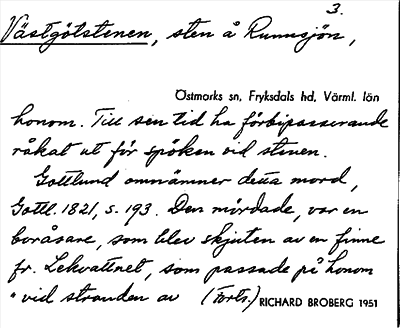 3.
Västgötstenen, sten å Runnsjön,
Östmarks sn, Fryksdals hd, Värml. län
honom. Till sen tid ha förbipasserande
råkat ut för spöken vid stenen.
Gottlund omnämner detta mord,
Gottl. 1821, s. 193. Den mördade, var en
boråsare, som blev skjuten av en finne
fr. Lekvattnet, som passade på honom
"vid stranden av (Forts.) RICHARD BROBERG 1951